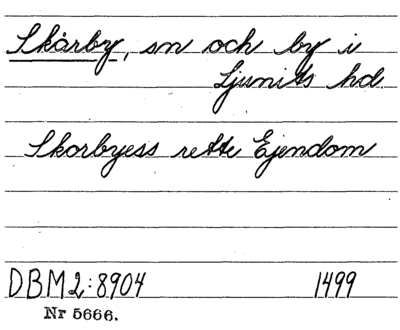 Skårby, sn och by i
Ljunits hd.
Skorbyess rette Ejendom
DBM2:8904 1499
Nr 5666.